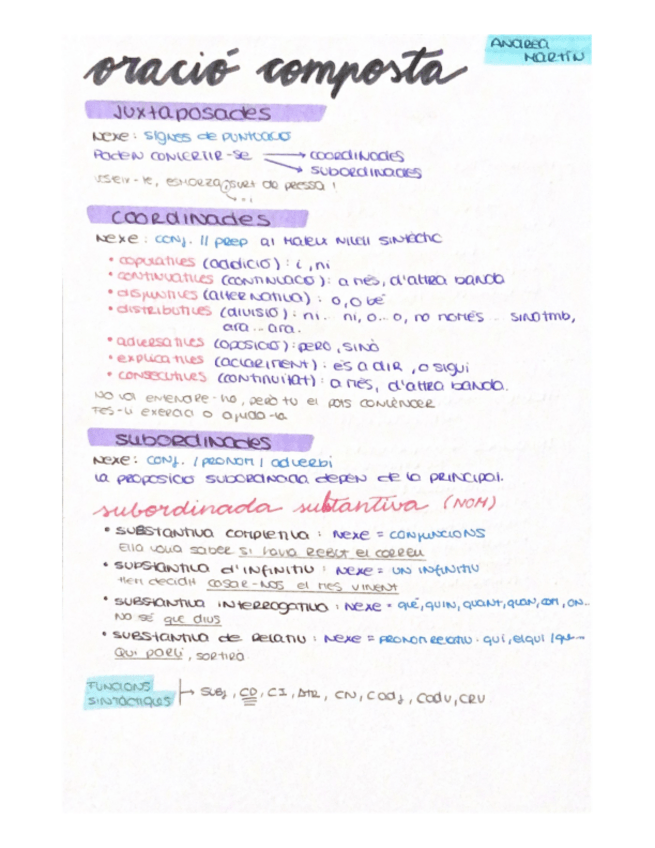 ANDREA
MARTÍN
oració composta
JUXTAPOSADES
NEXE: SIGNES DE PUNTUACIÓ
PODEN CONVERTIR-SE → COORDINADES
→ SUBORDINADES
VESTEIX-TE, ESMORZA, SURT DE PRESSA!
COORDINADES
NEXE: CONJ. // PREP al MATEIX NIVELL SINTÀCTIC
• COPULATIVES (ADDICIÓ): i, ni
• CONTINUATIVES (CONTINUACIÓ): a més, d'altra banda
• DISJUNTIVES (ALTERNATIVA): o, o bé
• DISTRIBUTIVES (DIVISIÓ): ni... ni, o... o, no només... sinó tmb,
ara... ara.
• ADVERSATIVES (OPOSICIÓ): PERÒ, SINÓ
• EXPLICATIVES (ACLARIMENT): és a DIR, o sigui
• CONSECUTIVES (CONTINUITAT): a més, d'altra banda.
NO VOL ENTENDRE-HO, PERÒ TU EL POTS CONVÈNCER
FES-LI EXERCICI O AJUDA-LA
SUBORDINADES
NEXE: CONJ. / PRONOM / adverbi
La PROPOSICIÓ SUBORDINADA depèn de la PRINCIPAL.
subordinada substantiva (NOM)
• SUBSTANTIVA completiva: NEXE = CONJUNCIONS
Ella volia saber si havia rebut el correu
• SUBSTANTIVA d'infinitiu: NEXE = UN INFINITIU
Hem decidit casar-nos el mes vinent
• SUBSTANTIVA INTERROGATIVA: NEXE = QUÈ, QUIN, QUANT, QUAN, COM, ON...
NO SÉ què dius
• SUBSTANTIVA de RELATIU: NEXE = PRONOM RELATIU. QUI, EL QUI / que...
Qui parli, sortirà
FUNCIONS
SINTÀCTIQUES → SUBJ, CD, CI, Atr, CN, CAdj, CAdv, CRV